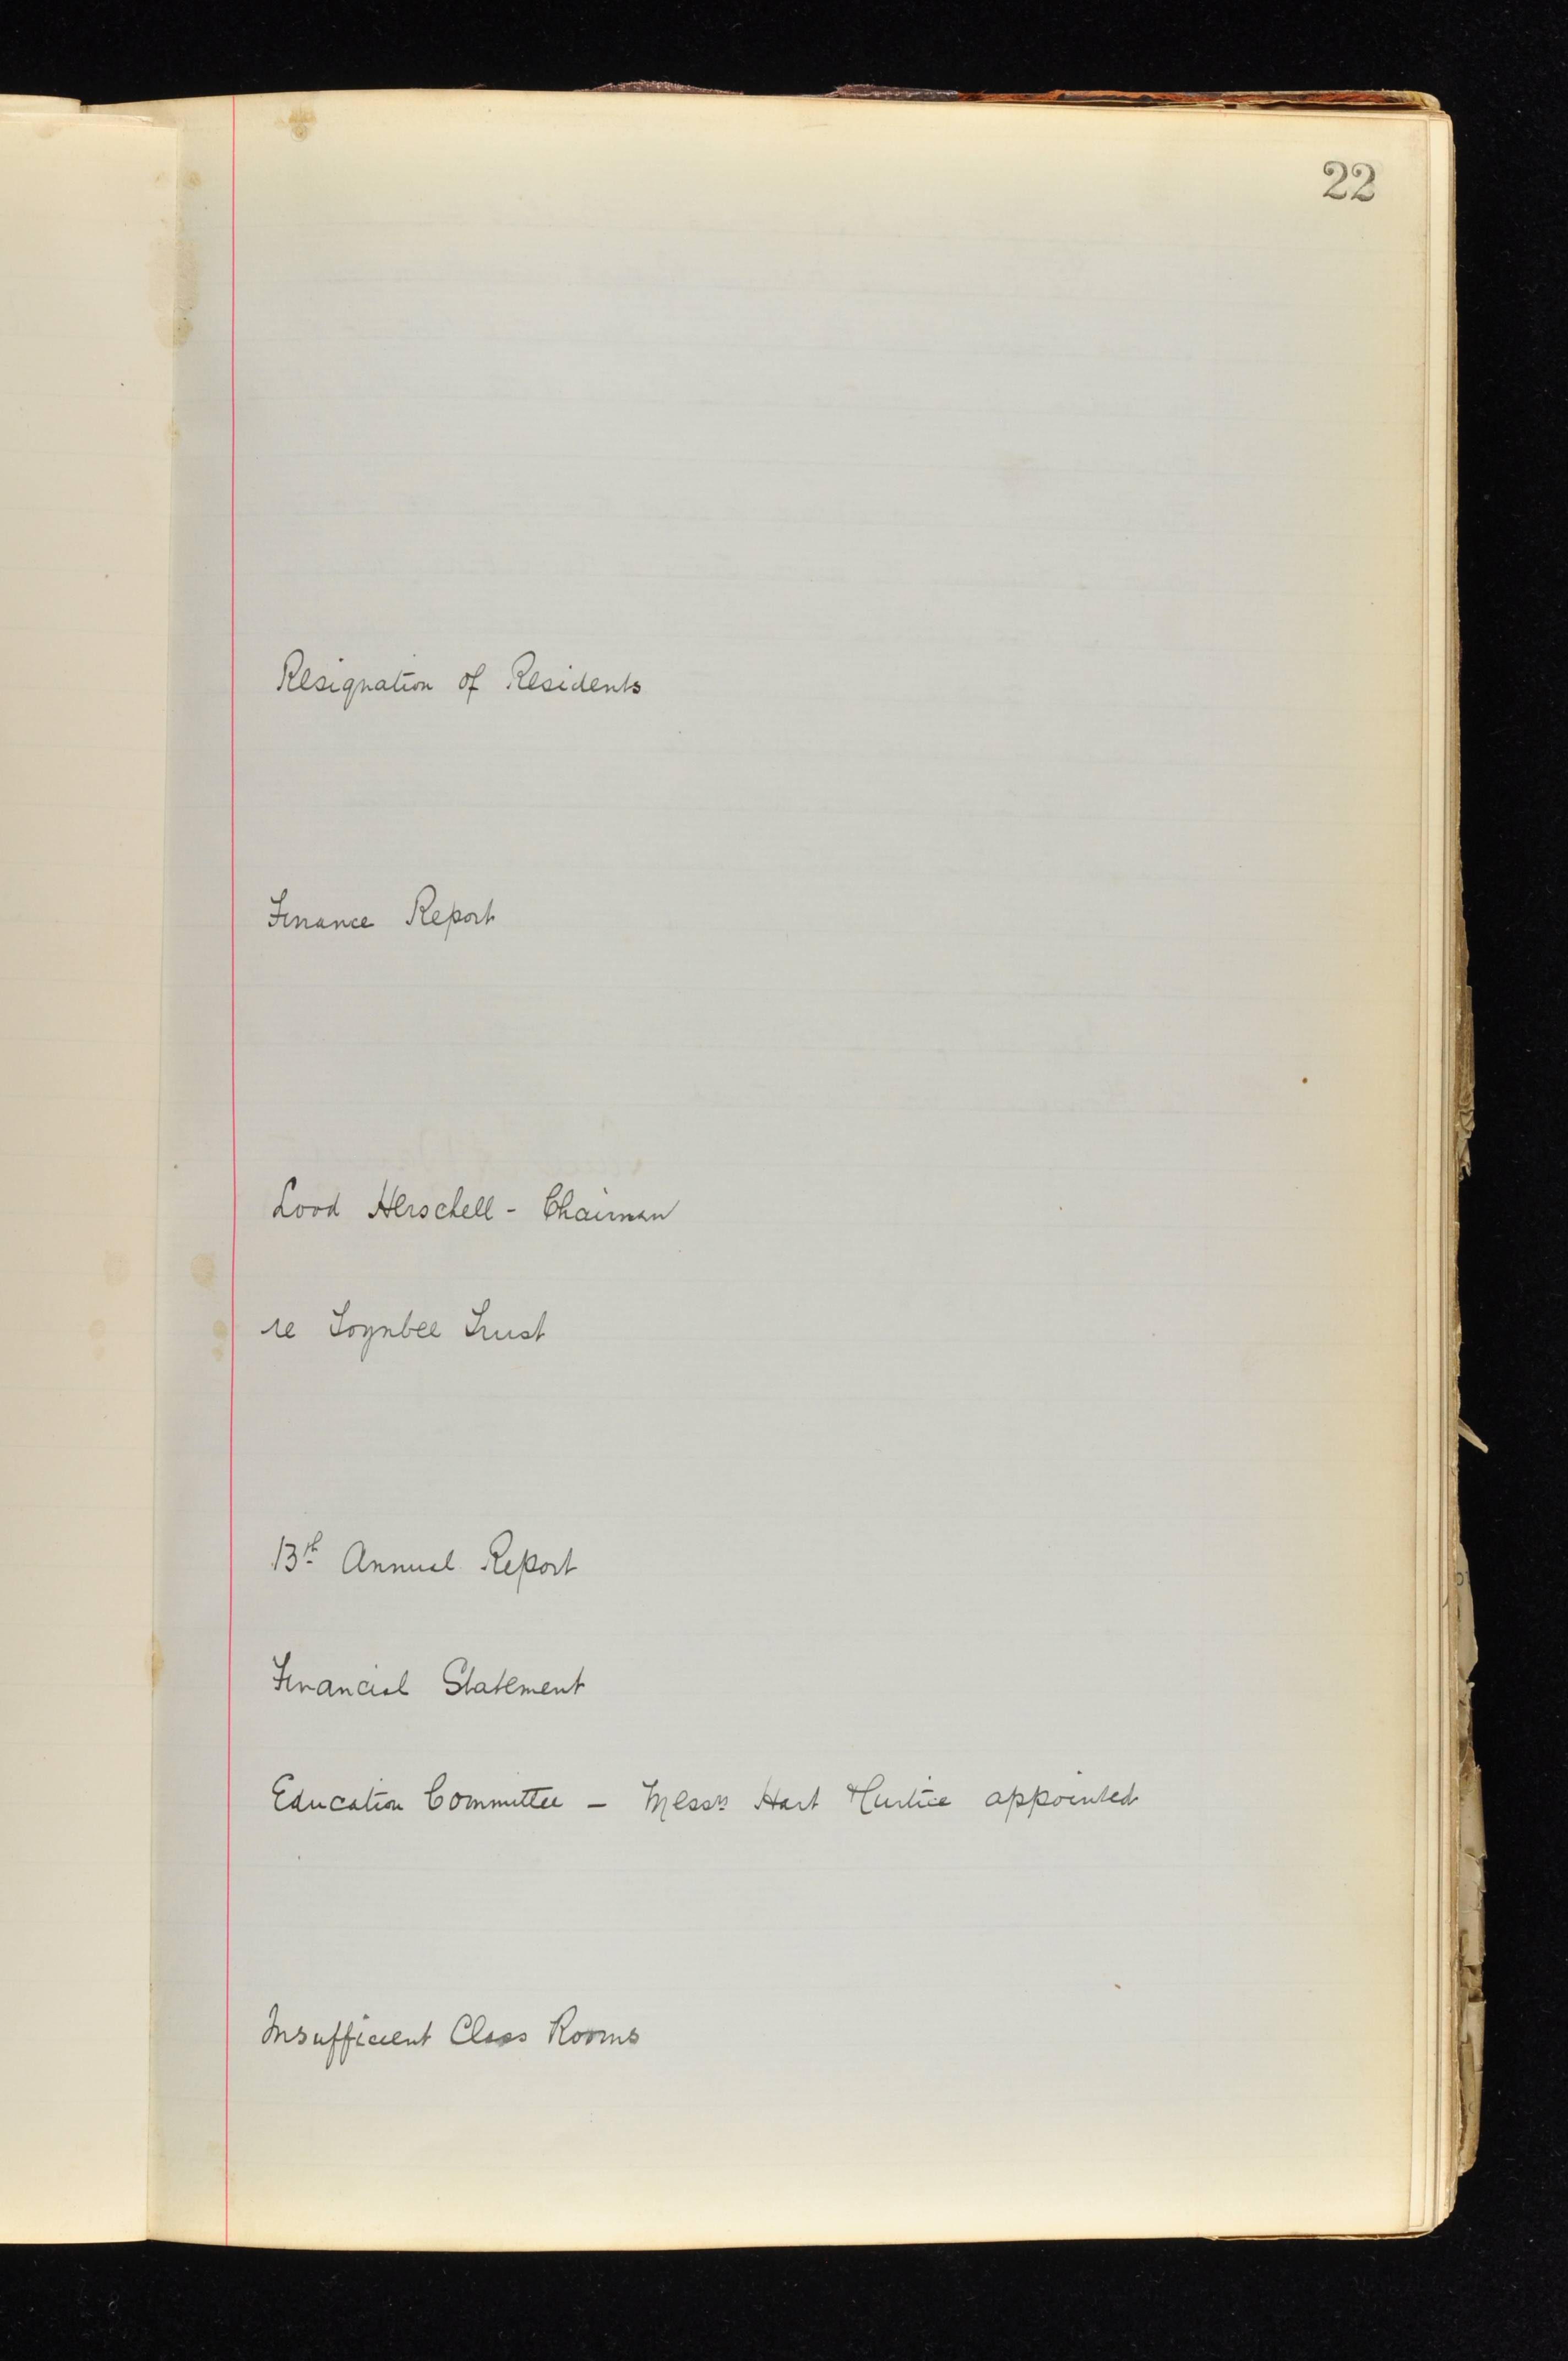 22
Resignation of Residents
Finance Report
Lord Herschell - Chairman
re Toynbee Trust
13th Annual Report
Financial Statement
Education Committee - Messrs Hart appointed
Insufficient Class Rooms